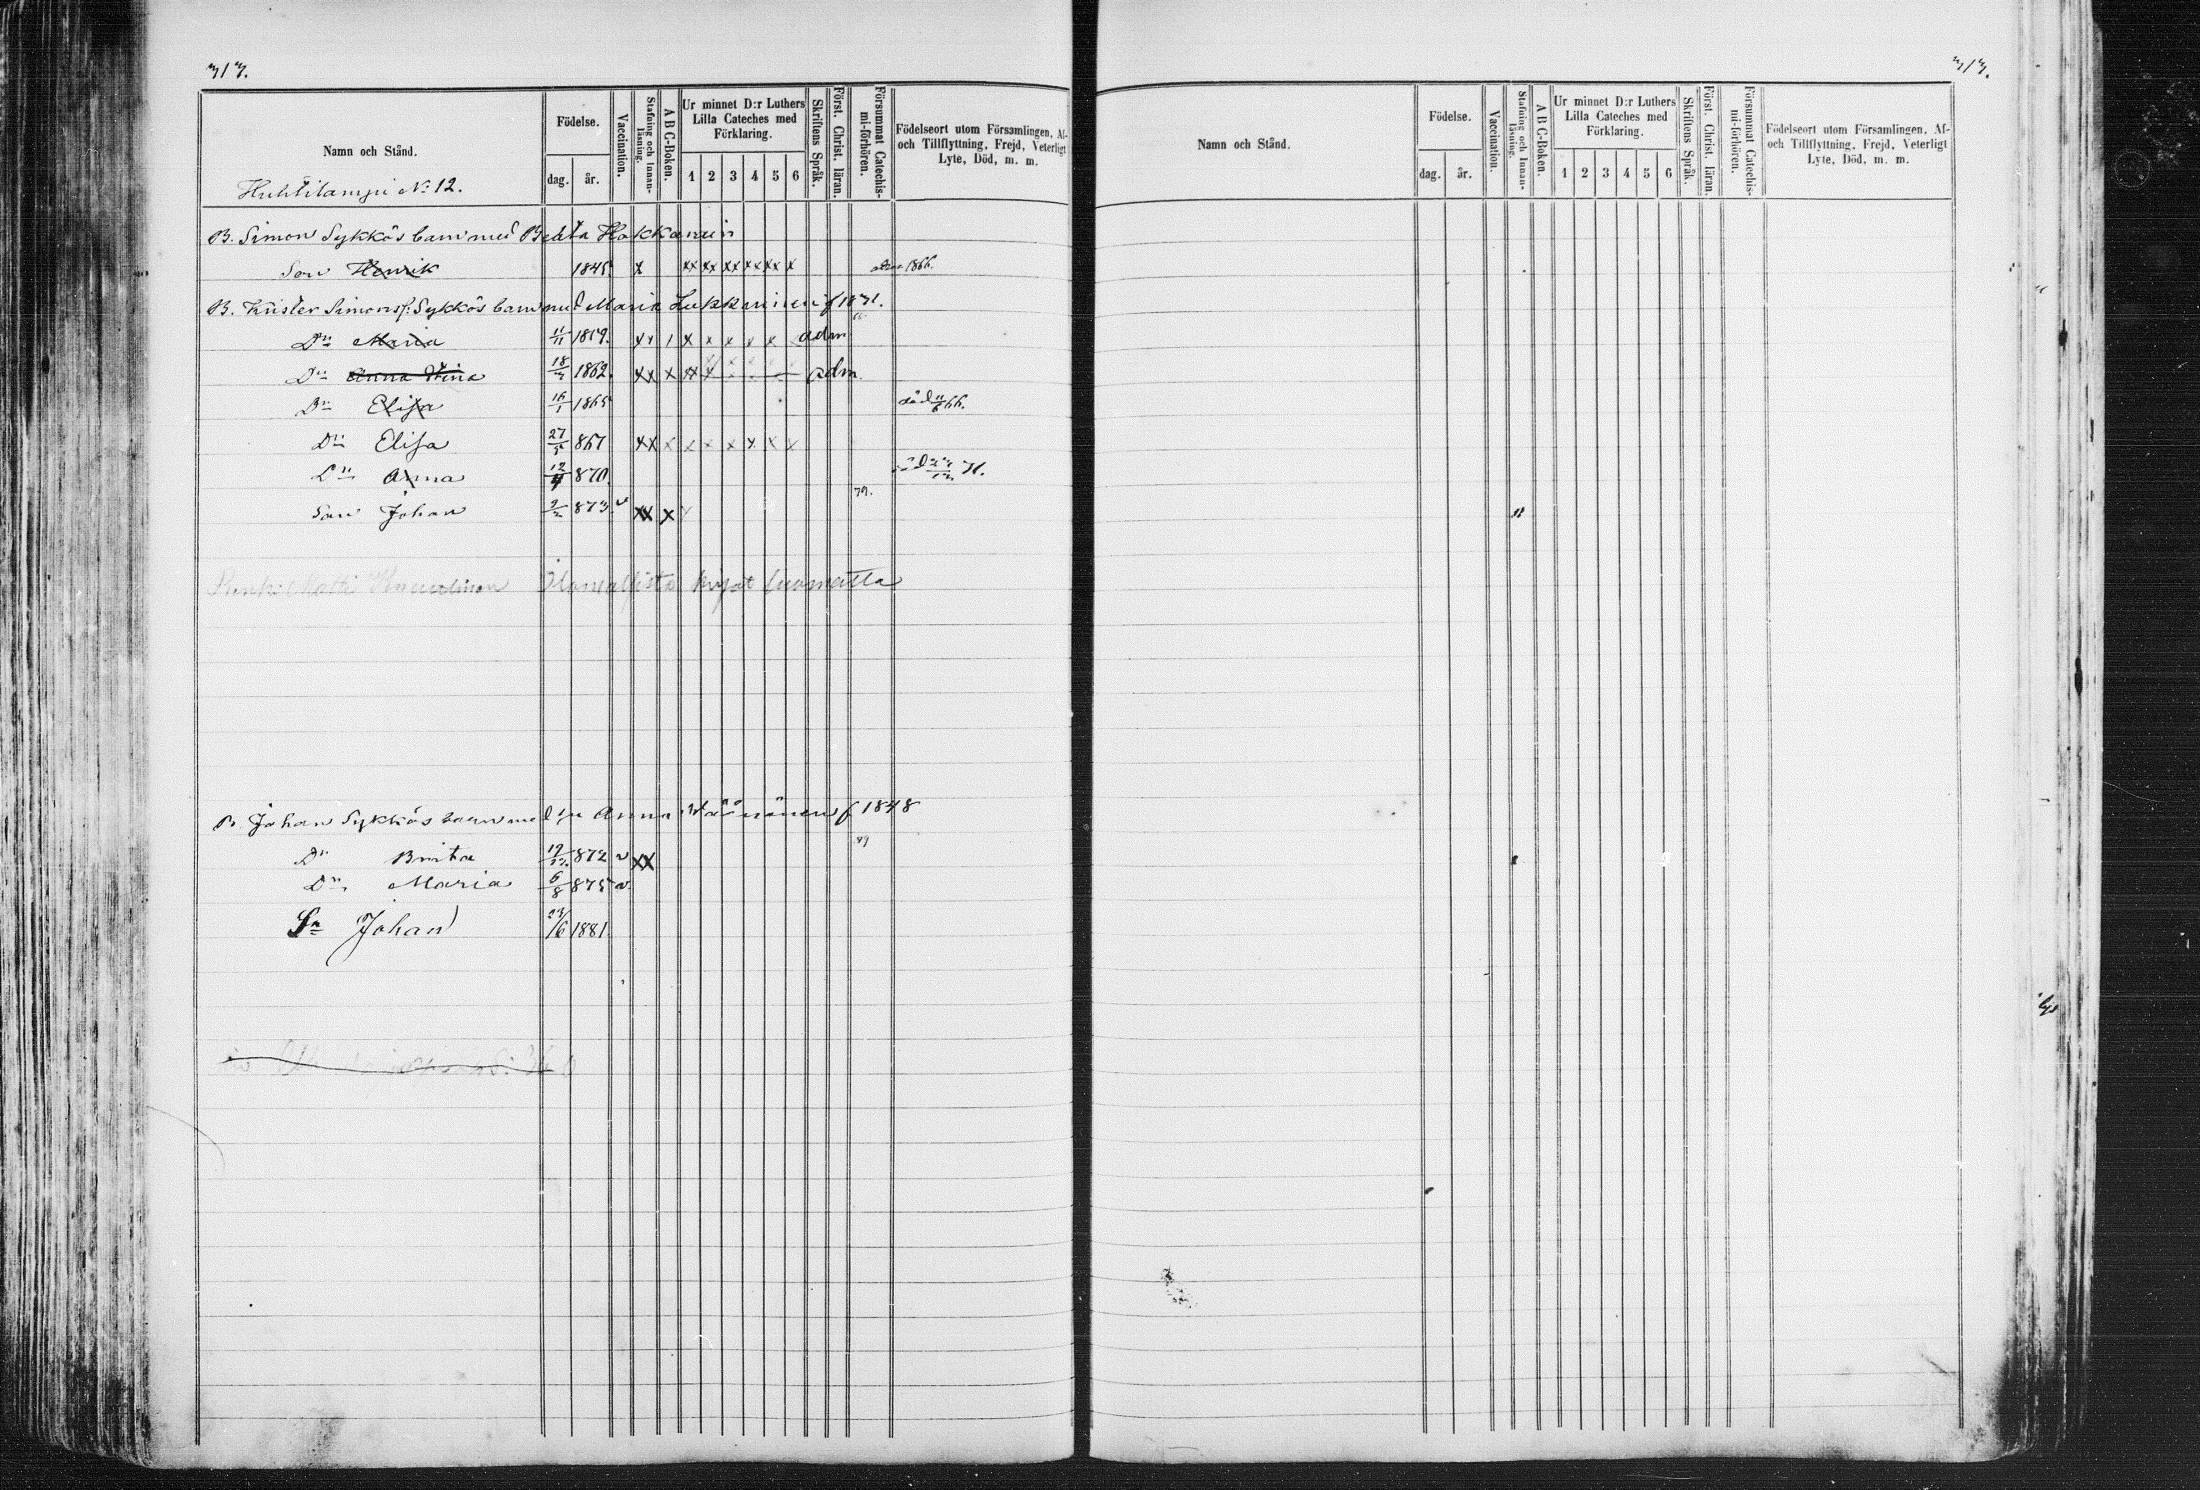 313.
Namn och Stånd.
Födelse.
dag.
år.
Vaccination.
Stafning och Innan-
läsning.
A B C-Boken.
Ur minnet D:r Luthers
Lilla Cateches med
Förklaring.
1 2 3 4 5 6
Skriftens Språk.
Först. Christ. läran.
Försummat Catechis-
mi-förhören.
Födelseort utom Församlingen, Af-
och Tillflyttning, Frejd, Veterligt
Lyte, Död, m. m.
Huhtilampi No 12.
B. Simon Sykkös barn med Beata Hakkarain
Son Henrik 1845. x xx xx xx xx xx x 1866.
B. Krister Simonss: Sykkös barn med Maria Lukkarinen f 1831.
Dr Maria 11/11 1859. x x 1 x x x x x adm
Dr Anna Stina 18/3 1862. xx x xx x adm.
Dr Elisa 16/1 1865 död 11/6 66.
Dr Elisa 27/5 867 xx x x x x x x x
Dr Anna 12/4 870. 71.
79.
Son Johan 2/2 873 v xx x
Renki Matti kirjat tuomatta
B. Johan Sykkös barn med hu Anna Väänänen f 1848
89
Dr Brita 19/12 872 v xx
Dr Maria 6/8 875 v.
Sn Johan 23/6 1881
313.
Namn och Stånd.
Födelse.
dag.
år.
Vaccination.
Stafning och Innan-
läsning.
A B C-Boken.
Ur minnet D:r Luthers
Lilla Cateches med
Förklaring.
1 2 3 4 5 6
Skriftens Språk.
Först. Christ. läran.
Försummat Catechis-
mi-förhören.
Födelseort utom Församlingen, Af-
och Tillflyttning, Frejd, Veterligt
Lyte, Död, m. m.